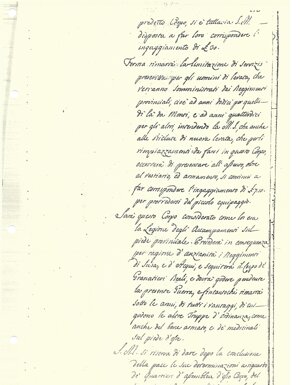 predetto Corpo, si è tuttavia S.M.
disposta a far loro corrispondere l'
ingaggiamento di £ 30.
Ferma rimarrà la limitazione di servizio
prescritta per gli uomini di levata, che
verranno somministrati dai Reggimenti
provinciali, cioè ad anni dodici per quelli
di là da Monti, e ad anni quattordici
per gli altri, intendendo la M.S. che anche
alle reclute di nuova levata, che pel
rimpiazzamento da farsi in questo Corpo
occorrerà di presentare all'
al vestiario, ed armamento, si continui a
far corrispondere l'ingaggiamento di
per provvedersi del piccolo equipaggio.
Sarà questo Corpo considerato come lo era
la Legione degli Accampamenti sul
piede provinciale. Prenderà in conseguenza
per regime d'anzianità i Reggimenti
di Susa, e d'Acqui, e seguiterà il Reggio de
Granatieri Reali, e dovrà godere pendente
la presente Guerra, e
sotto le armi, di tutti i vantaggi, di cui
godono le altre Truppe d'ordinanza, come
anche del pane armato, e de' medicinali
sul piede d'esse.
S.M. si riserva di dare dopo la conclusione
della pace le sue determinazioni
di Quartieri d'assemblea d'esso Corpo, del